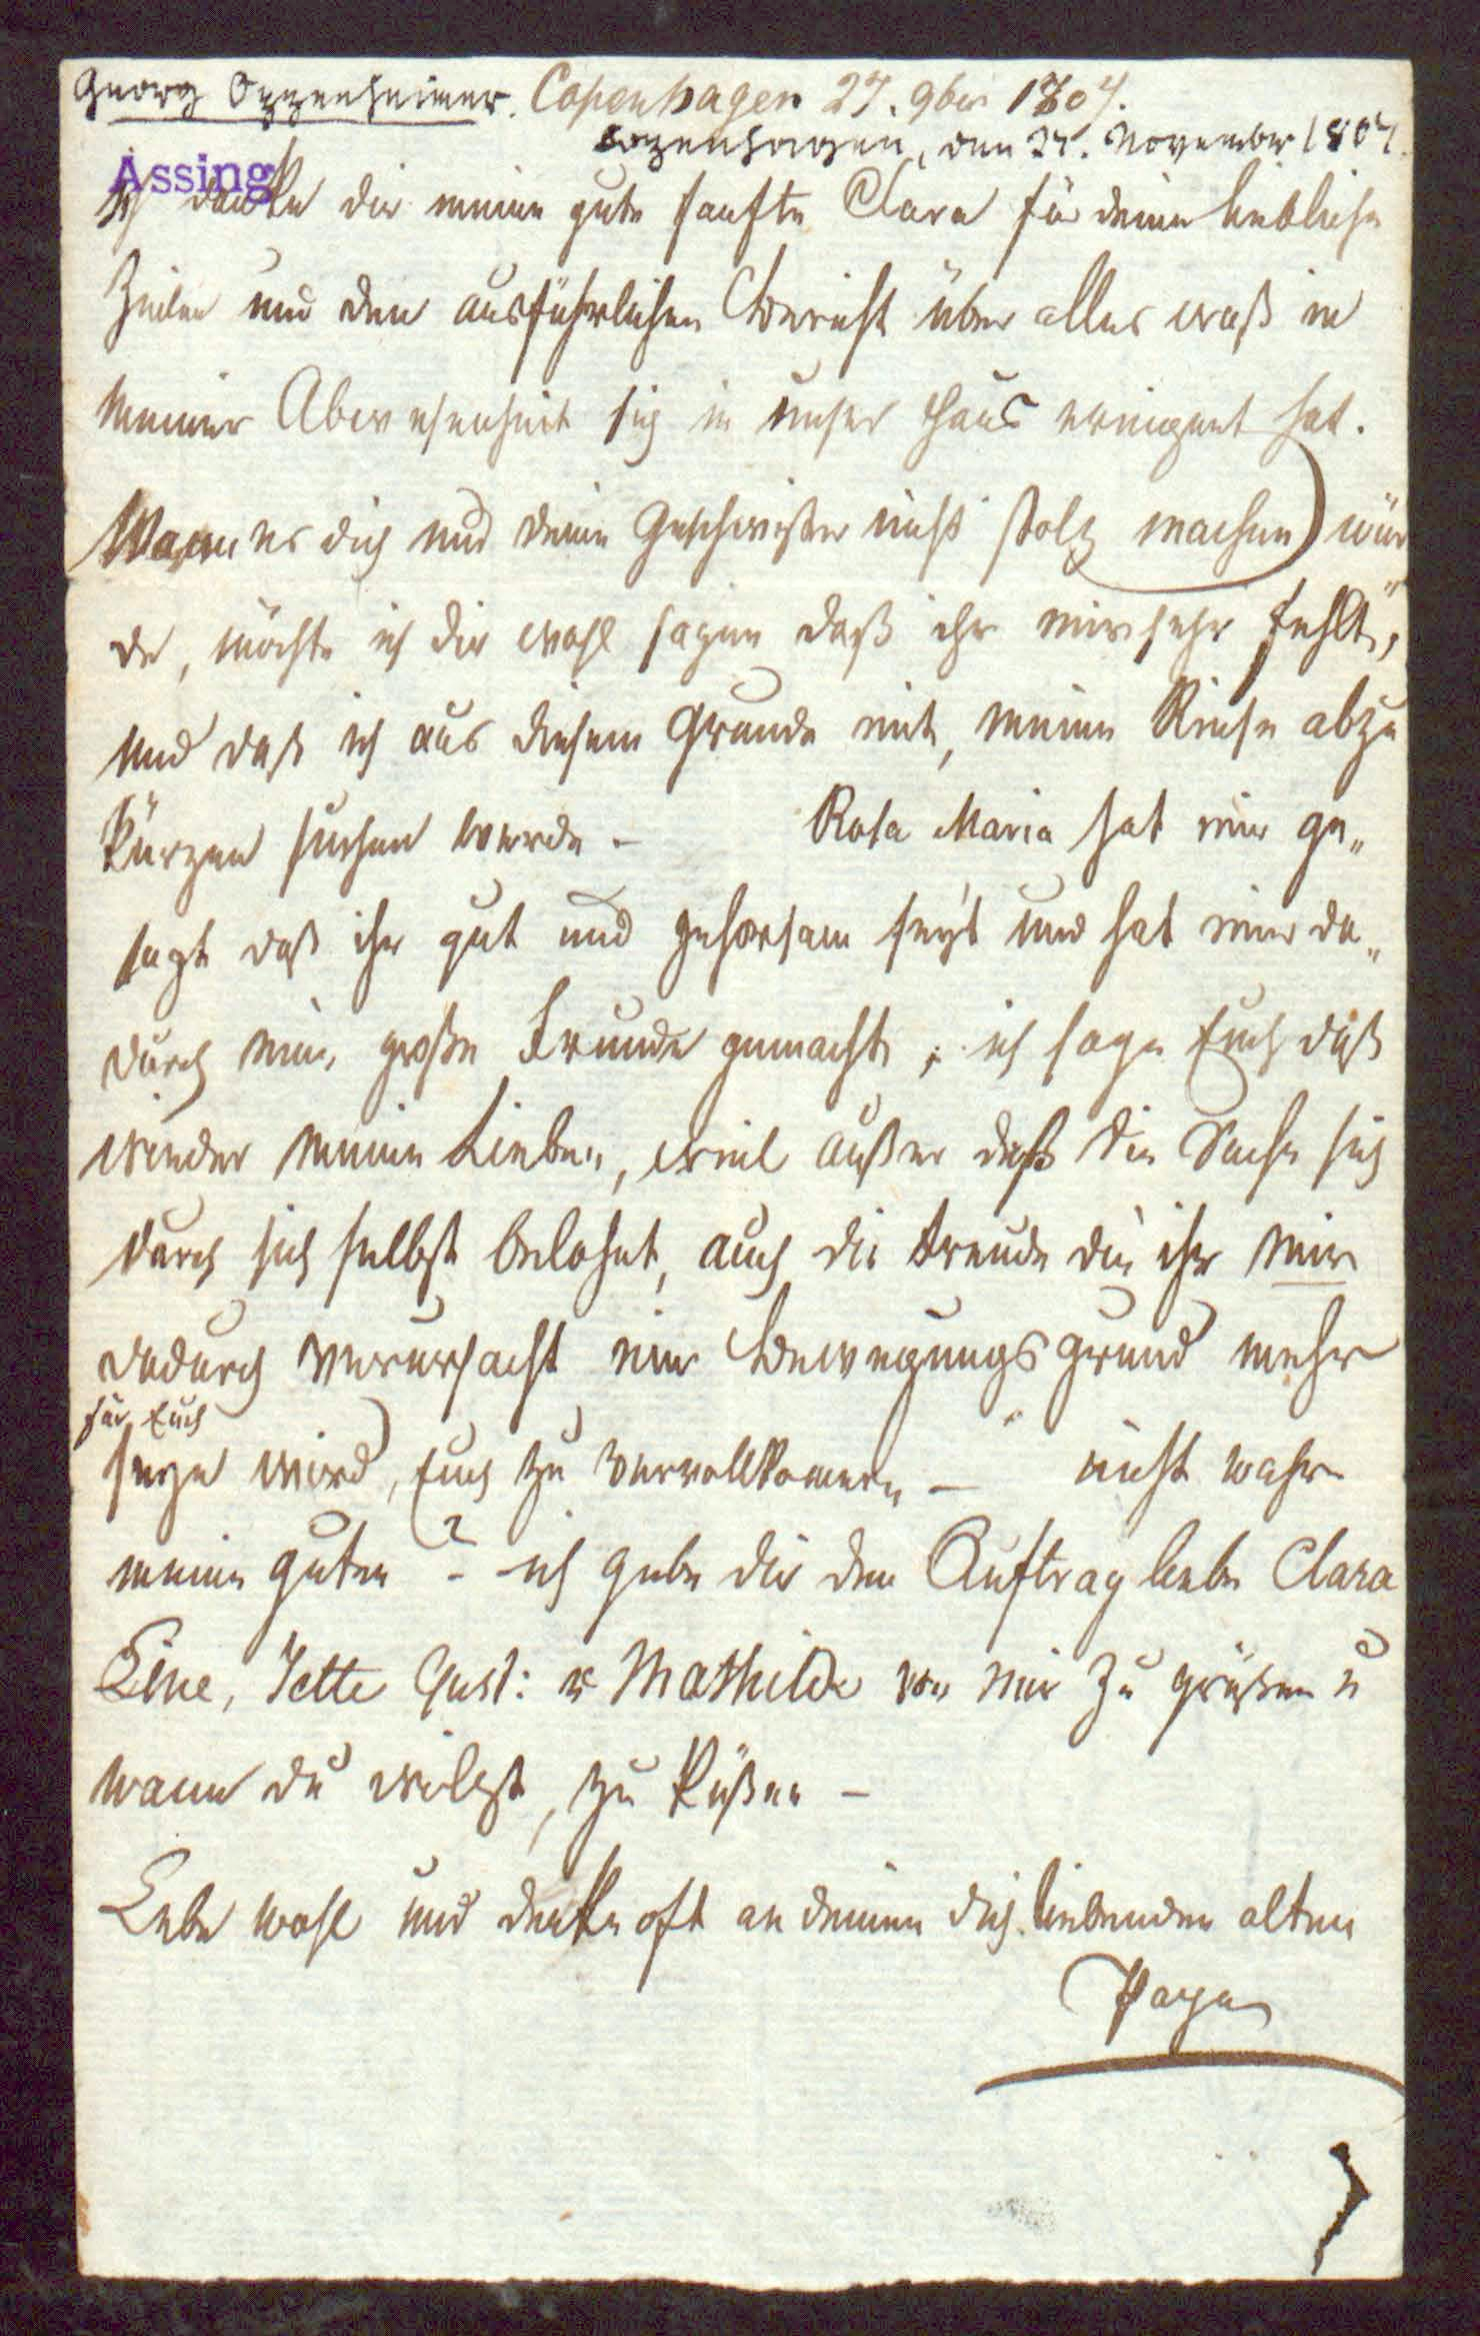 Georg Oppenheimer. Copenhagen 27. 9ber 1807.
Kopenhagen, den 27. November 1807.
Assing
Ich danke dir meine gute sanfte Clara für deine liebliche
Zeilen und den ausführlichen Bericht über alles waß in
meiner Abwesenheit sich in unser Haus ereignet hat.
Wann es dich und deine Geschwister nicht stolz machen wür
de, möchte ich dir wohl sagen daß ihr mir sehr fehlt,
und daß ich aus diesem Grunde mit, meine Reise abzu
kürzen suchen werde –
Rosa Maria hat mir ge„
sagt daß ihr gut und gehorsam seyd und hat mir da„
durch eine große Freude gemacht, ich sage Euch daß
wieder meine Lieben, weil außer daß die Sache sich
durch sich selbst belohnt, auch die Freude die ihr mir
dadurch verursacht ein Bewegungsgrund mehr
für Euch
seyn wird, Euch zu vervollkomern – nicht wahr
meine guten? – ich gebe dir den Auftrag liebe Clara
Line, Jette Gust: u Mathilde von mir zu grüßen u
wann du wilst, zu küßen –
Lebe wohl und denke oft an deinen dich liebenden alten
Papa